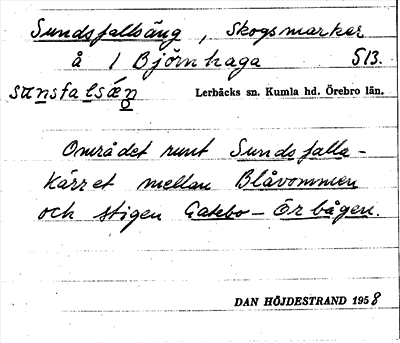 Sundsfallsäng, Skogsmarker
å 1 Björnhaga 513.
Lerbäcks sn. Kumla hd. Örebro län.
Området runt Sundsfalls-
kärret mellan Blåvommen
och stigen Gatebo - Örbågen.
DAN HÖJDESTRAND 1958